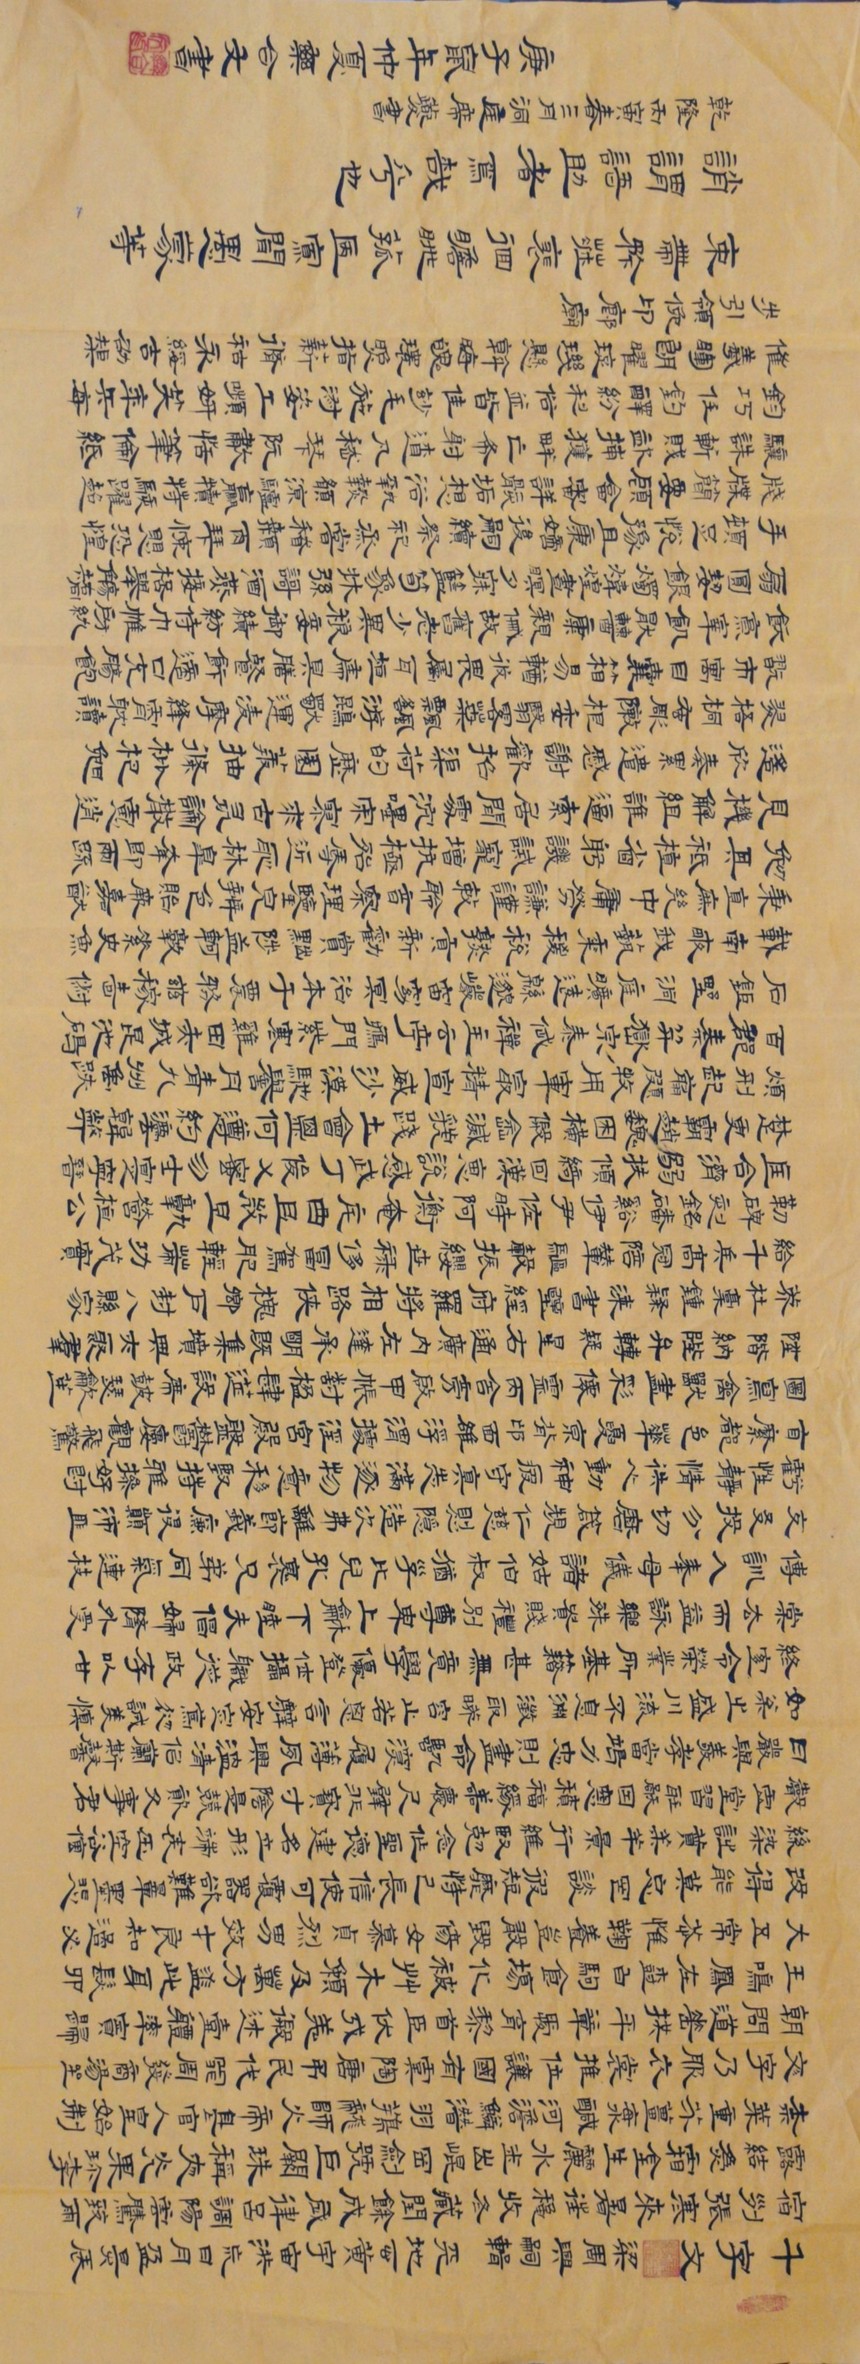 千字文 梁周興嗣輯 天地玄黃宇宙洪荒日月盈昃辰
宿列張寒來暑往秋收冬藏閏餘成歲律呂調陽雲騰致雨
露結為霜金生麗水玉出崑岡劍號巨闕珠稱夜光果珍李
柰菜重芥薑海鹹河淡鱗潛羽翔龍師火帝鳥官人皇始制
文字乃服衣裳推位讓國有虞陶唐弔民伐罪周發商湯坐
朝問道垂拱平章愛育黎首臣伏戎羌遐邇壹體率賓歸
王鳴鳳在樹白駒食場化被艸木賴及萬方蓋此身髮四
大五常恭惟鞠養豈敢毀傷女慕貞烈男效才良知過必
改得能莫忘罔談彼短靡恃己長信使可覆器欲難量墨悲
絲染詩讚羔羊景行維賢克念作聖德建名立形端表正空谷傳
聲虛堂習聽禍因惡積福緣善慶尺璧非寶寸陰是競資父事君
曰嚴與敬孝當竭力忠則盡命臨深履薄夙興溫凊似蘭斯馨
如松之盛川流不息淵澄取映容止若思言辭安定篤初誠美慎
終宜令榮業所基籍甚無竟學優登仕攝職從政存以甘
棠去而益詠樂殊貴賤禮別尊卑上和下睦夫唱婦隨外受
傅訓入奉母儀諸姑伯叔猶子比兒孔懷兄弟同氣連枝
交友投分切磨箴規仁慈隱惻造次弗離節義廉退顛沛匪
虧性靜情逸心動神疲守真志滿逐物意移堅持雅操好爵
自縻都邑華夏京背邙面雒浮渭據涇宮殿盤鬱樓觀飛驚
圖寫禽獸畫彩仙靈丙舍傍啟甲帳對楹肆筵設席鼓瑟吹笙
陞階納陛弁轉疑星右通廣內左達承明既集墳典亦聚群
英杜稾鍾隸漆書壁經府羅將相路俠槐卿戶封八縣家
給千兵高冠陪輦驅轂振纓世祿侈富駕肥輕策功茂實
勒碑刻銘磻谿伊尹佐時阿衡奄宅曲阜微旦孰營桓公
匡合濟弱扶傾綺回漢惠說感武丁俊乂密勿士寔寧晉
楚更霸趙魏困橫假途滅虢踐土會盟何遵約法韓弊
煩刑起翦頗牧用軍最精宣威沙漠馳譽丹青九州禹跡
百郡秦并嶽宗泰岱禪主云亭雁門紫塞雞田赤城昆池碣
石鉅野洞庭曠遠緜邈巖岫杳冥治本于農務茲稼穡俶
載南畝我藝黍稷稅熟貢新勸賞黜陟孟軻敦素史魚
秉直庶幾中庸勞謙謹敕聆音察理鑒貌辨色貽厥嘉猷
勉其祗植省躬譏誡寵增抗極殆辱近恥林皋幸即兩疏
見機解組誰逼索居閒處沉默寂寥求古尋論散慮逍
遙欣奏累遣慼謝歡招渠荷的歷園莽抽條枇杷晚
翠梧桐蚤彫陳根委翳落葉飄颻游鵾獨運凌摩絳霄耽讀
翫市寓目囊箱易輶攸畏屬耳垣墻具膳餐飯適口充腸飽
飫烹宰飢厭糟糠親戚故舊老少異糧妾御績紡侍巾帷房紈
扇圓潔銀燭煒煌晝眠夕寐藍筍象牀弦歌酒讌接杯舉觴矯
手頓足悅豫且康嫡後嗣續祭祀烝嘗稽顙再拜悚懼恐惶
牋牒簡要顧答審詳骸垢想浴執熱願涼驢騾犢特駭躍超
驤誅斬賊盜捕獲叛亡布射遼丸嵇琴阮嘯恬筆倫紙
鈞巧任釣釋紛利俗並皆佳妙毛施淑姿工顰妍笑年矢每
催羲暉朗曜璇璣懸斡晦魄環照指薪修祜永綏吉劭矩
步引領俯仰廊廟
束帶矜莊徘徊瞻眺孤陋寡聞愚蒙等
誚謂語助者焉哉乎也
乾隆丙寅春三月洞庭席書
庚子鼠年仲夏樂台文書